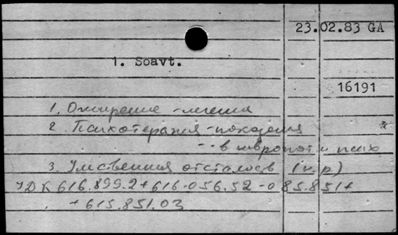 23.02.83 GA
1. Soavt.
16191
1. Ожирение - лечения
2. Психотерапия - показания
-- в невропат и псих
3. Умственная отсталость (н.р)
УДК 616.899.2+616-056.52-085.851+
+615.851.03